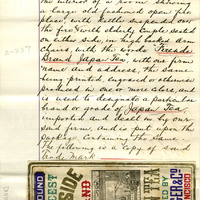 the interior of a room showing
a large old fashioned open fire
place, with Kettle suspended over
the fire & with elderly couple seated
on either side, in high backed arm
chairs, with the words Fireside
Brand Japan Tea, with our firm
name and address, the same
being printed, engraved or otherwise
produced in one or more colors, and
is used to designate a particular
brand or grade of Japan Tea,
imported and dealt in by our
said firm, and is put upon the
package containing the same.
The following is a copy of said
trade mark
OUND
EST
SIDE
H & Co.
ANCISCO